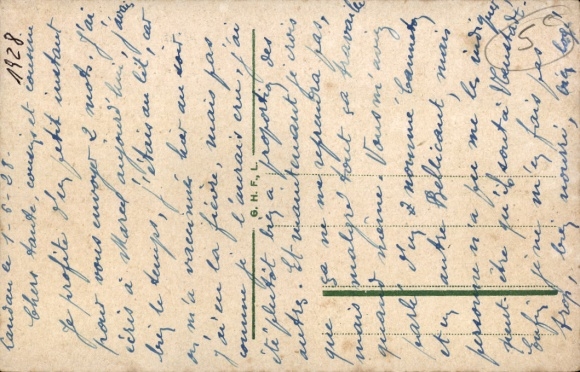 1928.
Landau le 1-6-28
Chers tante, cousins et cousine
Je profite d'un petit instant
pour vous envoyer 2 mots. J'ai
écris à Mered aujourd'hui, j'avais
bien le temps, j'étais au lit, car
on m'a vacciné hier au soir.
J'ai eu la fièvre, mais pas
comme je l'aurais cru, j'ai
été plutôt bien à des
autres. Et maintenant je crois
que ça ne me reprendra pas,
mais malgré tout ça travaille
quand même. Vous m'aviez
parlé d'un nommé
et un autre Bellicaut, mais
personne n'a pu me les indiquer
peut être qu'ils sont à
Enfin je ne m'en fais pas
trop, bien nourri, bien logé
G. H. F. L.
55